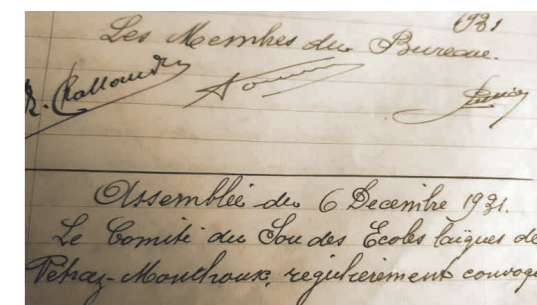 1931
Les Membres du Bureau.
Assemblée du 6 Decembre 1931.
Le Comité du Sou des Ecoles laïques de
Vétraz-Monthoux, régulièrement convoqu